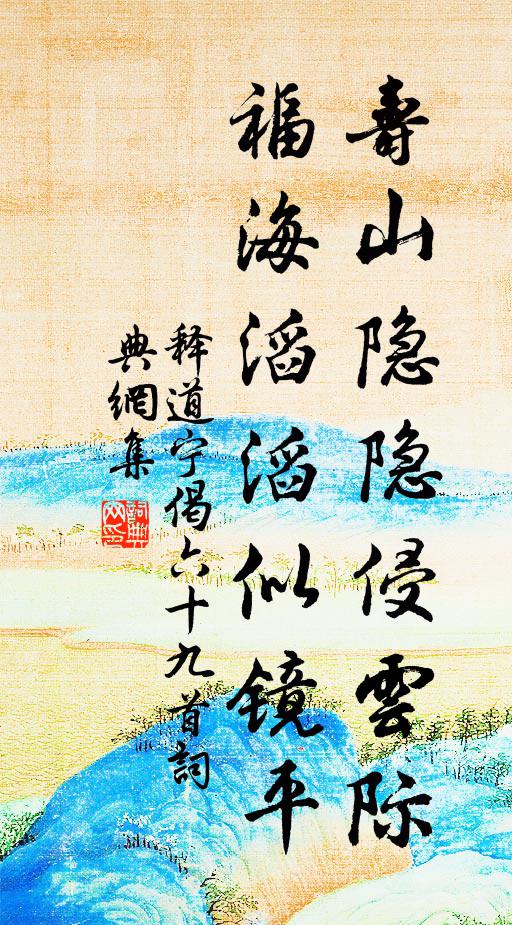 壽山隐隐侵雲际
福海滔滔似镜平
释道宁偈六十九首詞
典網集
詞典网印